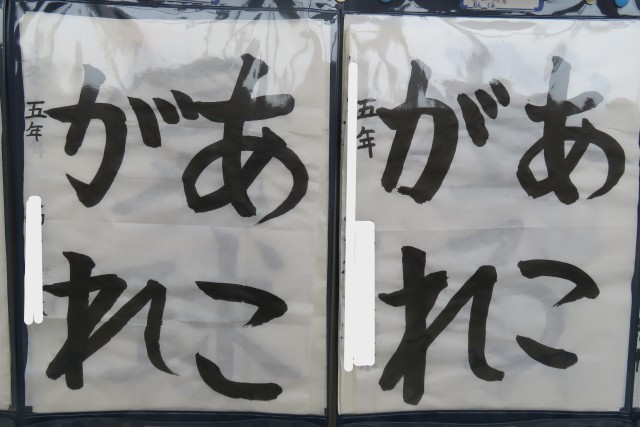 あこ
がれ
五年
あこ
がれ
五年